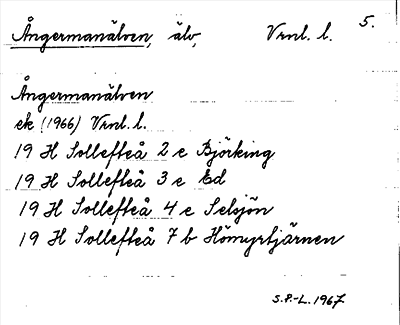 Ångermanälven, älv, Vrnl. l. 5.
Ångermanälven
ek (1966) Vrnl. l.
19 H Sollefteå 2 e Björking
19 H Sollefteå 3 e Ed
19 H Sollefteå 4 e Selsjön
19 H Sollefteå 7 b Hömyrtjärnen
S.P.-L. 1967